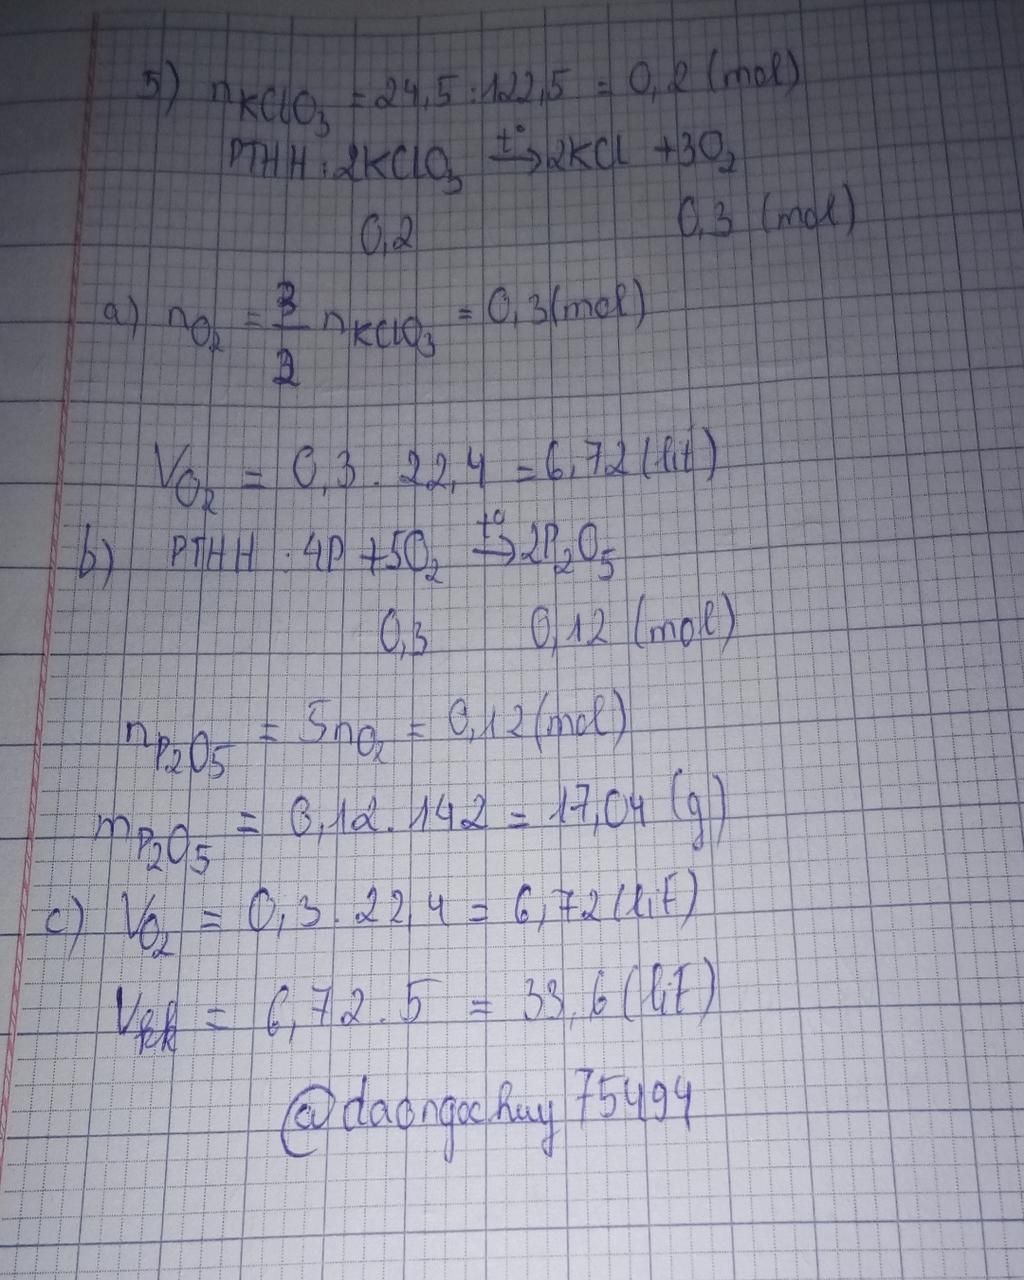 5) nKClO3 = 24,5 : 122,5 = 0,2 (mol)
PTHH : 2KClO3 t°→ 2KCl + 3O2
0,2 0,3 (mol)
a) nO2 = 3/2 nKClO3 = 0,3 (mol)
VO2 = 0,3 . 22,4 = 6,72 (lít)
b) PTHH : 4P + 5O2 t°→ 2P2O5
0,3 0,12 (mol)
nP2O5 = 5nO2 = 0,12 (mol)
mP2O5 = 0,12 . 142 = 17,04 (g)
c) VO2 = 0,3 . 22,4 = 6,72 (lít)
Vkk = 6,72 . 5 = 33,6 (lít)
@daongochuy75494